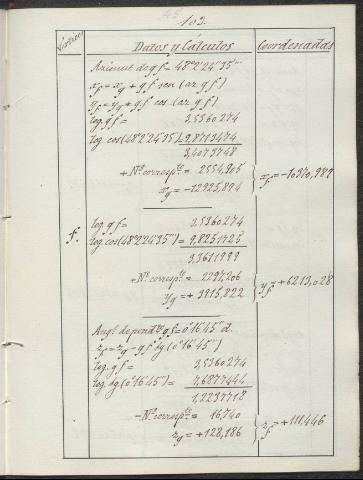 103.
Vértices Datos y Cálculos Coordenadas
Azimut de gf = 48°2'24"35"'
xf = xg + gf sen (az. gf)
yf = yg + gf cos (az. gf)
log. gf = 3,5360274
log. cos (48°2'24"35) = 9,8713474
3,4073748
+ Nº corresp.te = 2554,905
xg = -12925,894
xf = -10370,989
f. log. gf = 3,5360274
log. cos (48°2'24"35"') = 9,8251725
3,3611999
- Nº corresp.te = 2297,206
yg = + 3915,822
yf = +6213,028
Ang.º de pend.te gf = 0°16'45" d.
zf = zg - gf tg (0°16'45")
log. gf = 3,5360274
log. tg (0°16'45") = 7,6877444
1,2237718
- Nº corresp.te = 16,740
zg = +128,186
zf = +111,446